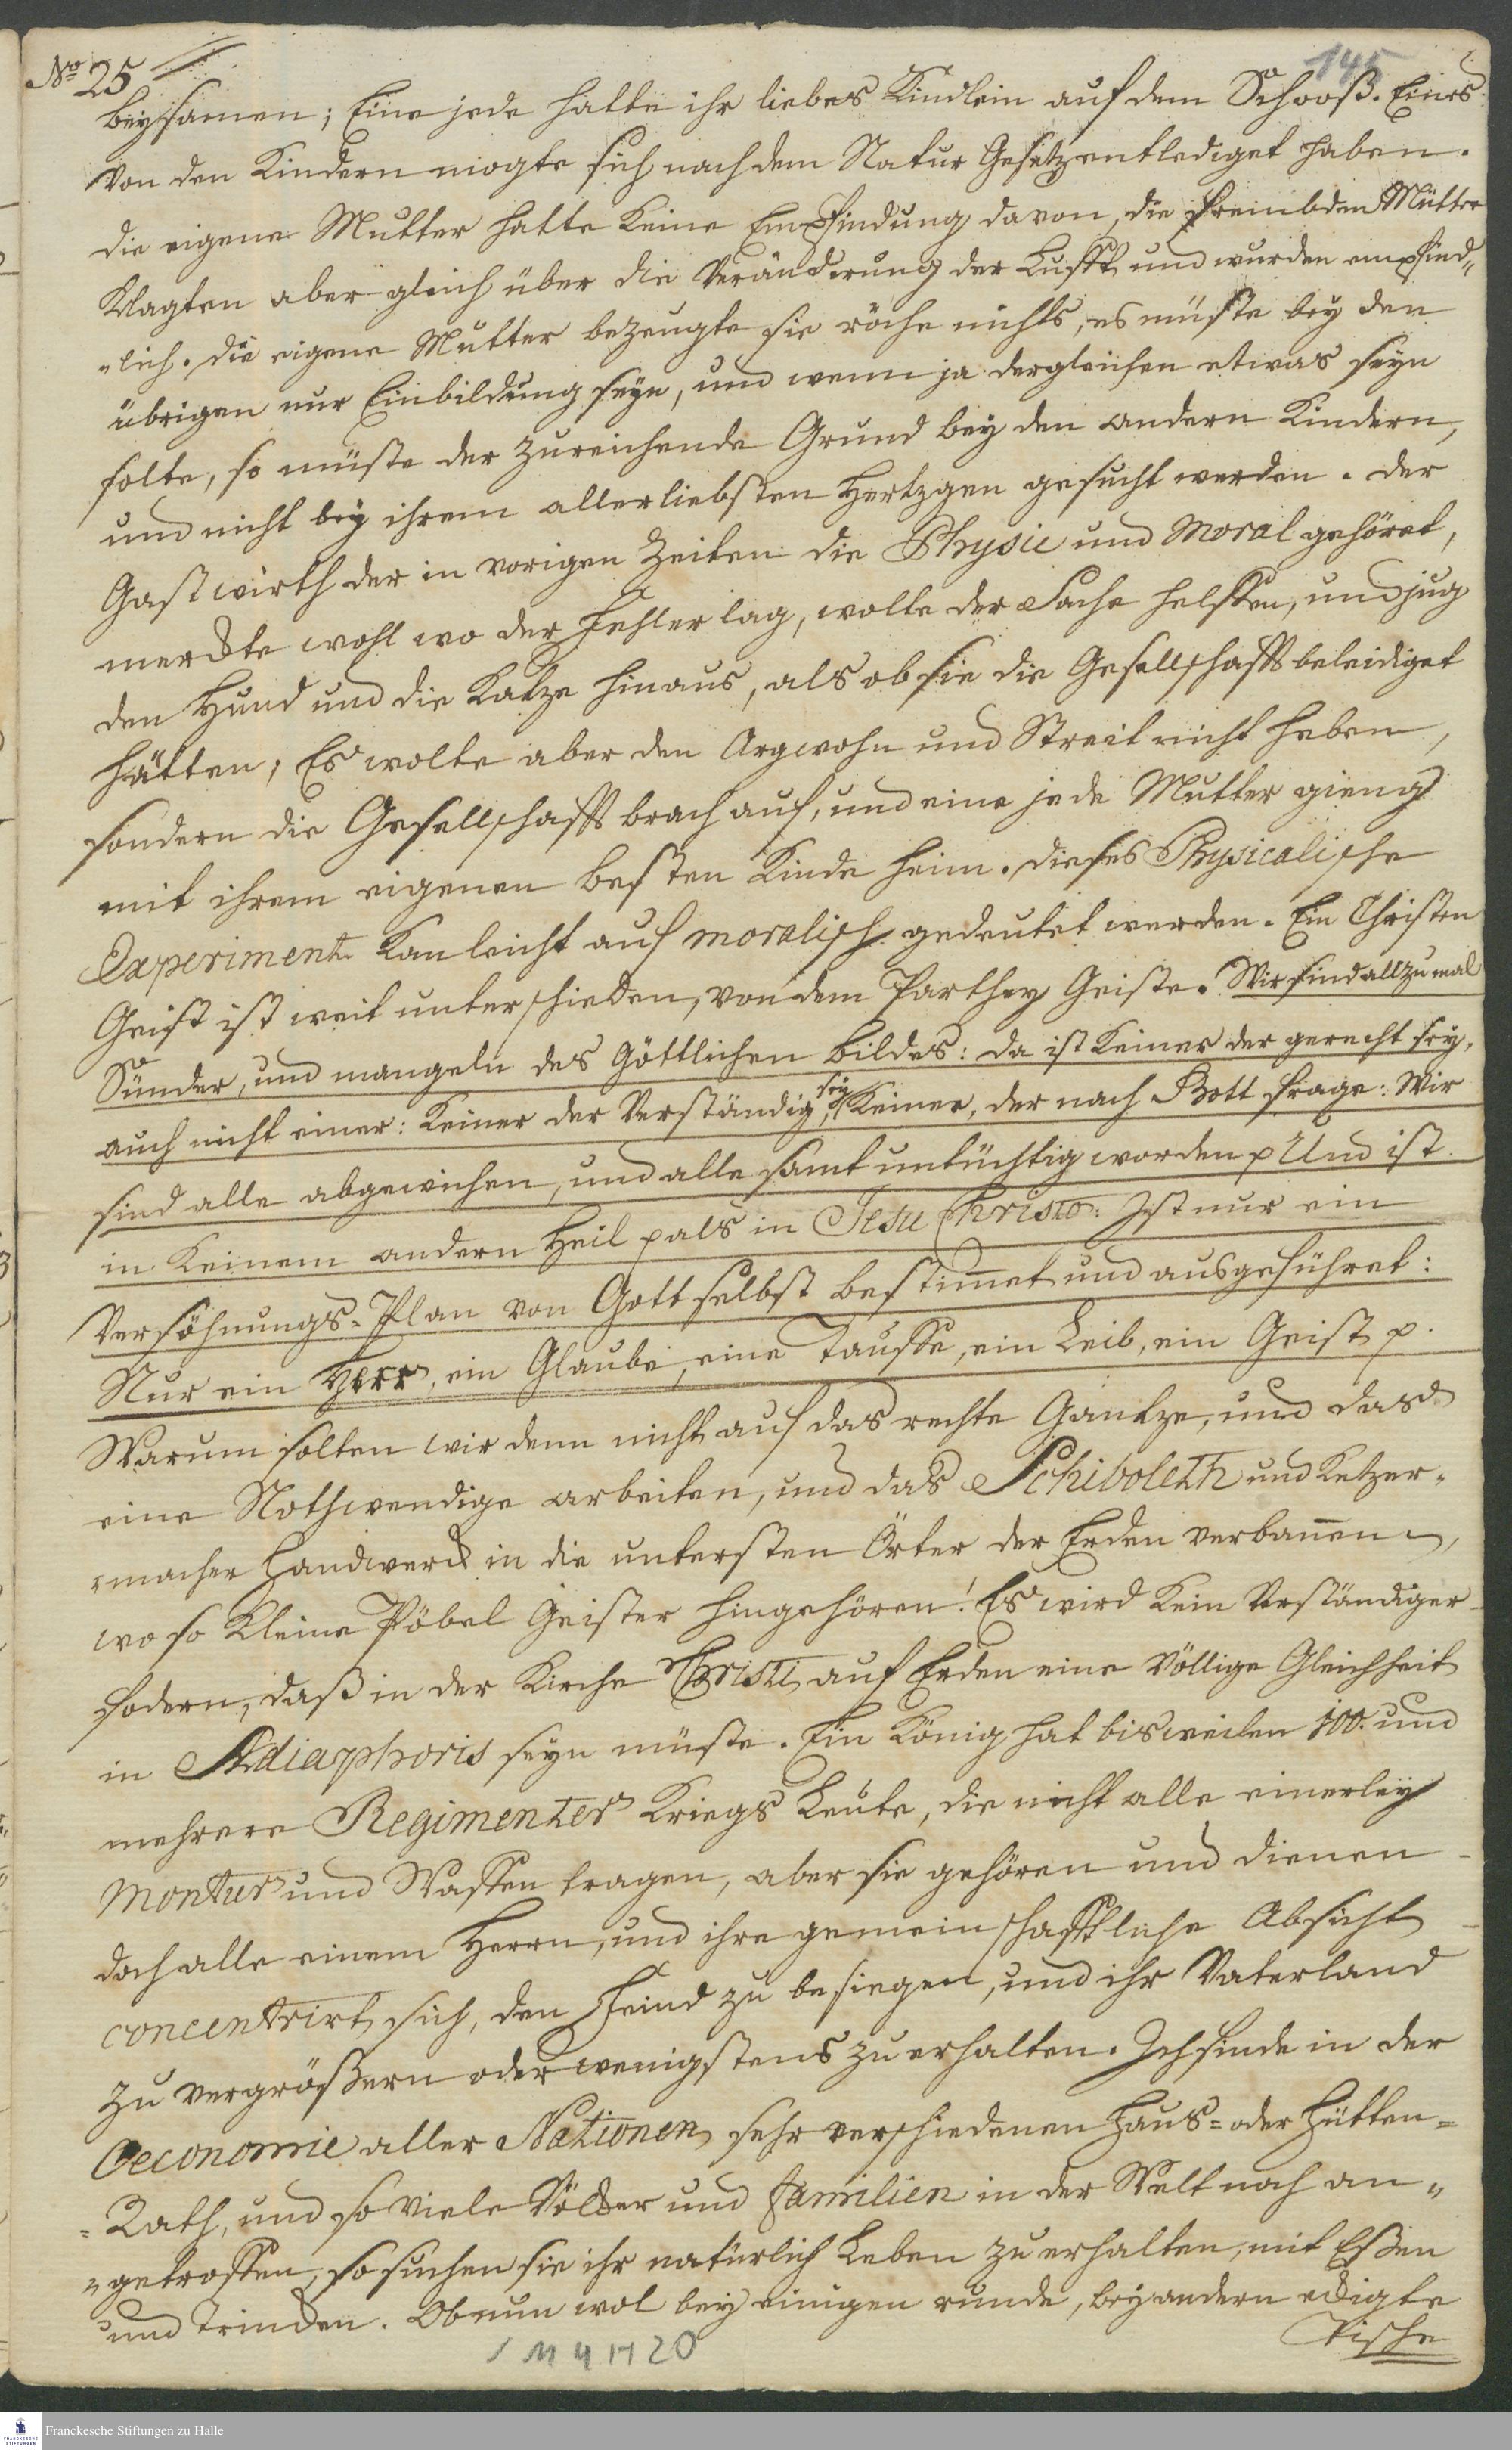 No 25
145
beysamen; Eine jede hatte ihr liebes Kindlein auf dem Schooß. Eines
von den Kindern mogte sich nach dem Natur Gesetz entlediget haben.
die eigene Mutter hatte keine Empfindung davon, die frembden Mütter
klagten aber gleich über die Veränderung der Lufft und wurden empfind„
„lich. die eigene Mutter bezeugte sie röche nichts, es müste bey den
übrigen nur Einbildung seyn, und wenn ja dergleichen etwas seyn
solte, so müste der zureichende Grund bey den andern Kindern,
und nicht bey ihrem allerliebsten Hertzgen gesucht werden. der
Gastwirth der in vorigen Zeiten die Physic und Moral gehöret,
merckte wohl wo der Fehler lag, wolte der Sache helffen, und jug
den Hund und die Katze hinaus, als ob sie die Gesellschafft beleidiget
hätten; Es wolte aber den Argwohn und Streit nicht heben,
sondern die Gesellschafft brach auf, und eine jede Mutter gieng
mit ihrem eigenen besten Kinde heim. dieses Physicalische
Experiment kan leicht auf moralisch gedeutet werden. Ein Christen
Geist ist weit unterschieden, von dem Parthey Geiste. Wir sind allzumal
Sünder, und mangeln des Göttlichen Bildes: da ist keiner der gerecht sey,
auch nicht einer: keiner der Verständig sey, keiner, der nach Gott frage: Wir
sind alle abgewichen, und alle samt untüchtig worden p Und ist
in keinem andern Heil p als in Jesu Christo: Ist nur ein
Versöhnungs-Plan von Gott selbst bestimmet und ausgeführet:
Nur ein Herr, ein Glaube, eine Tauffe, ein Leib, ein Geist p.
Warum solten wir denn nicht auf das rechte Gantze, und das
eine Nothwendige arbeiten, und das Schiboleth und Ketzer-
-macher Handwerck in die untersten Örter der Erden verbannen,
wo so kleine Pöbel Geister hingehören! Es wird kein Verständiger
fodern, daß in der Kirche Christi auf Erden eine völlige Gleichheit
in Adiaphoris seyn müste. Ein König hat bisweilen 100. und
mehrere Regimenter Kriegs Leute, die nicht alle einerley
Montur und Waffen tragen, aber sie gehören und dienen
doch alle einem Herrn, und ihre gemeinschafftliche Absicht
concentrirt sich, den Feind zu besiegen, und ihr Vaterland
zu vergrößern oder wenigstens zu erhalten. Ich finde in der
Oeconomie aller Nationen, sehr verschiedenen Haus- oder Hütten-
-Rath, und so viele Völcker und Familien in der Welt noch an„
„getroffen, so suchen sie ihr natürlich Leben zu erhalten, mit Eßen
und Trincken. Ob nun wol bey einigen runde, bey andern eckigte
Tische
1 M 4 H 20
Franckesche Stiftungen zu Halle